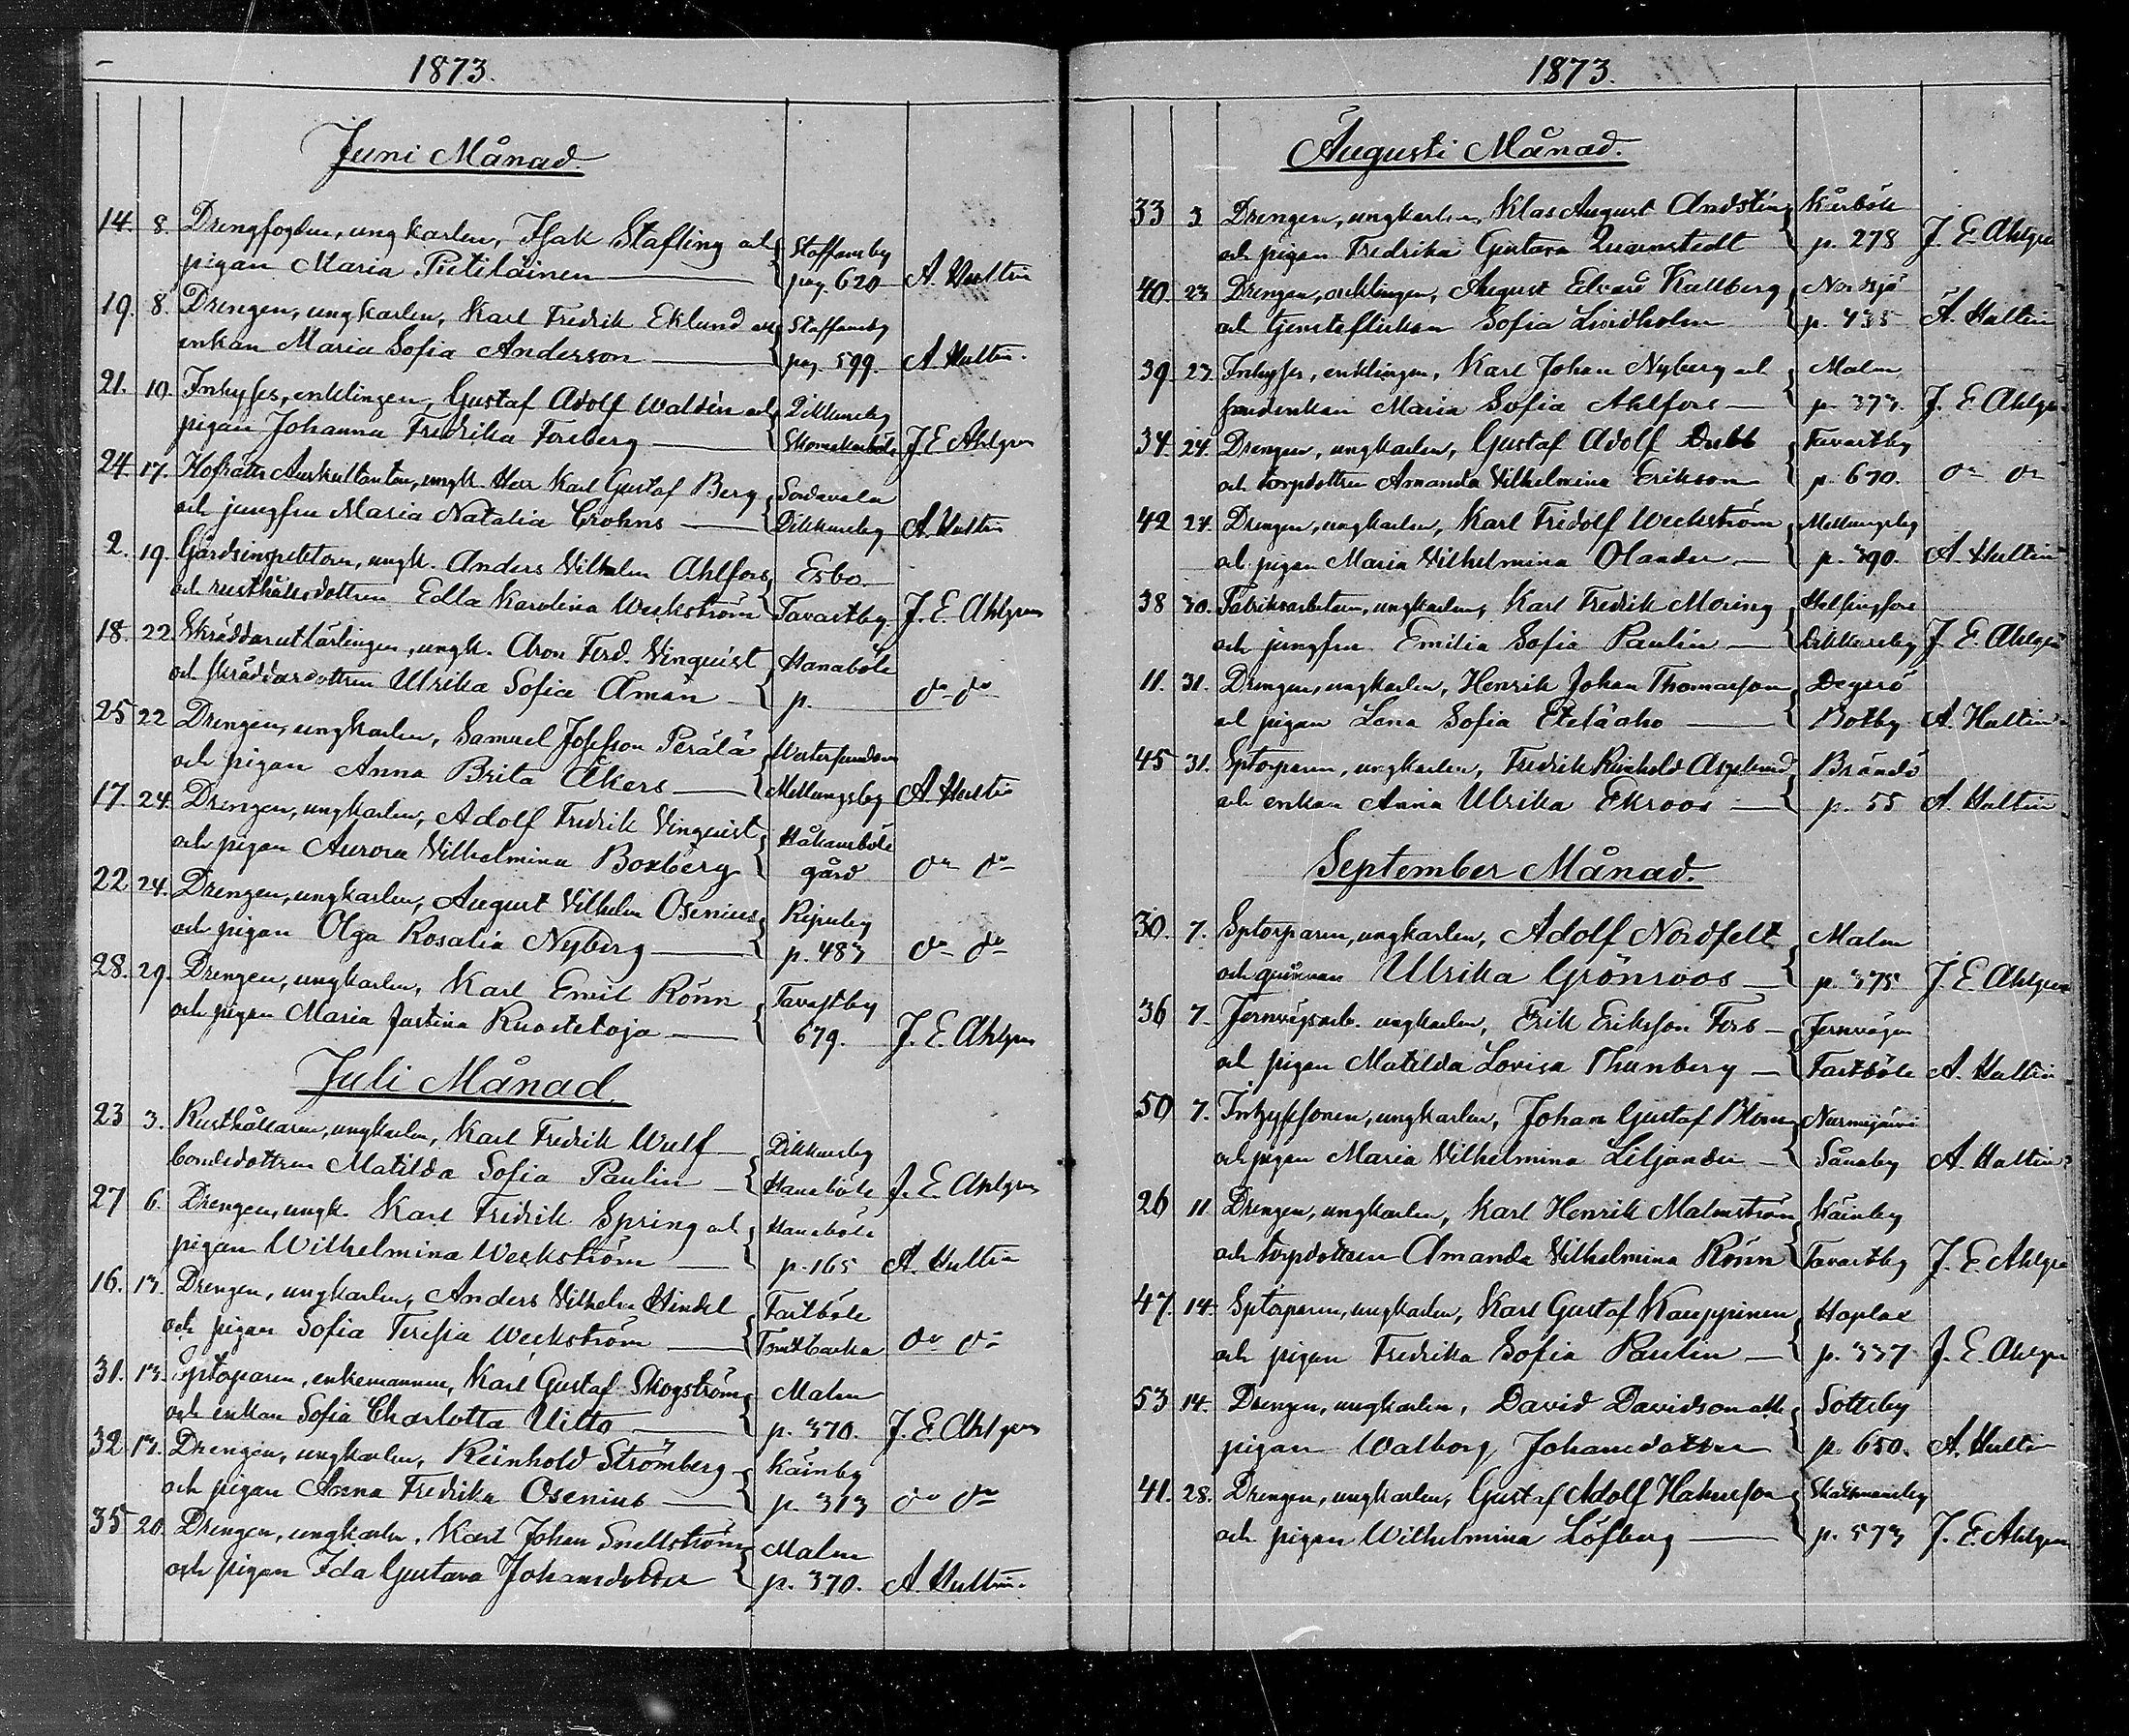 1873.
Juni Månad.
14. 8. Drengfogden, ungkarlen, Isak Stafling och Staffansby
pigan Maria Putiläinen pag. 620 A. Hultin
19. 8. Drengen, ungkarlen, Karl Fredrik Eklund och Staffansby
enkan Maria Sofia Anderson pag. 599. A. Hultin.
21. 10. Inhyses, enklingen, Gustaf Adolf Waldén och Dikkursby
pigan Johanna Fredrika Forsberg Skomakarböle J. E. Ahlgren
24. 17. Hofrätts Auskultanten, ungk. Herr Karl Gustaf Berg Sordavala
och jungfru Maria Natalia Crohns Dikkursby A. Hultin
2. 19. Gårdsinspektoren, ungk. Anders Vilhelm Ahlfors Esbo
och rusthållsdottren Edla Karolina Weckström Tavastby J. E. Ahlgren
18. 22 Skräddareutlärlingen, ungk. Aron Ferd. Vinquist Hanaböle
och skräddaredottren Ulrika Sofia Åman p. do do
25 22 Drengen, ungkarlen, Samuel Josefsson Perälä
och pigan Anna Brita Åkers Mellungsby A. Hultin
17. 24. Drengen, ungkarlen, Adolf Fredrik Vinquist Håkansböle
och pigan Aurora Vilhelmina Boxberg gård do do
22 24. Drengen, ungkarlen, August Vilhelm Osenius Ripuby
och pigan Olga Rosalia Nyberg p. 483 do do
28. 29. Drengen, ungkarlen, Karl Emil Rönn Tavastby
och pigan Maria Justina Ruostetoja 679. J. E. Ahlgren
Juli Månad.
23 3. Rusthållaren, ungkarlen, Karl Fredrik Wulf Dikkursby
bondedottren Matilda Sofia Paulin Hanaböle J. E. Ahlgren
27 6. Drengen, ungk. Karl Fredrik Spring och Hanaböle
pigan Wilhelmina Weckström p. 165 A. Hultin
16. 13. Drengen, ungkarlen, Anders Vilhelm Hindel Fastböle
och pigan Sofia Teresia Weckström Tomtbacka do do
31. 13. Sptorparen, enkemannen, Karl Gustaf Skogström Malm
och enkan Sofia Charlotta Uitto p. 370. J. E. Ahlgren
32 13. Drengen, ungkarlen, Reinhold Strömberg Kåinby
och pigan Anna Fredrika Osenius p. 313 do do
35 20. Drengen, ungkarlen, Karl Johan Snellström Malm
och pigan Ida Gustava Johansdotter p. 370. A. Hultin.
1873.
Augusti Månad.
33 3 Drengen, ungkarlen, Klas August Andstén Kårböle
och pigan Fredrika Gustava Quarnstedt p. 278 J. E. Ahlgren
40 23 Drengen, enklingen, August Edvard Kullberg Nordsjö
och tjensteflickan Sofia Lindholm p. 435 A. Hultin
39 23. Inhyses, enklingen, Karl Johan Nyberg och Malm
Maria Sofia Ahlfors p. 373. J. E. Ahlgren
34. 24. Drengen, ungkarlen, Gustaf Adolf Dubb Tavastby
och torpdottren Amanda Vilhelmina Erikson p. 670. do do
42 24. Drengen, ungkarlen, Karl Fridolf Weckström Mellungsby
och pigan Maria Vilhelmina Olander p. 390. A. Hultin
38 30. Fabriksarbetaren, ungkarlen, Karl Fredrik Moring Helsingfors
och jungfru Emilia Sofia Paulin Dikkursby J. E. Ahlgren
11. 31. Drengen, ungkarlen, Henrik Johan Thomasson Degerö
och pigan Lena Sofia Eteläaho Botby A. Hultin
45 31. Sptorparen, ungkarlen, Fredrik Reinhold Asplund Brändö
och enkan Anna Ulrika Ekroos p. 55 A. Hultin
September Månad.
30. 7. Sptorparen, ungkarlen, Adolf Nordfelt Malm
och qvinnan Ulrika Grönroos p. 375 J. E. Ahlgren
36 7. Jernvägsarb. ungkarlen, Erik Eriksson Fors Jernvägen
och pigan Matilda Lovisa Thunberg Fastböle A. Hultin
50 7. Inhyssonen, ungkarlen, Johan Gustaf Blom Nurmijärvi
och pigan Maria Vilhelmina Liljander Sånaby A. Hultin
26 11 Drengen, ungkarlen, Karl Henrik Malmström Kåinby
och torpdottren Amanda Vilhelmina Rönn Tavastby J. E. Ahlgren
47. 14. Sptorparen, ungkarlen, Karl Gustaf Kauppinen Hoplax
och pigan Fredrika Sofia Paulin p. 337 J. E. Ahlgren
53 14. Drengen, ungkarlen, David Davidson och Sottsby
pigan Walborg Johansdotter p. 650. A. Hultin
41. 28. Drengen, ungkarlen, Gustaf Adolf Hakusson
och pigan Wilhelmina Löfberg p. 573 J. E. Ahlgren